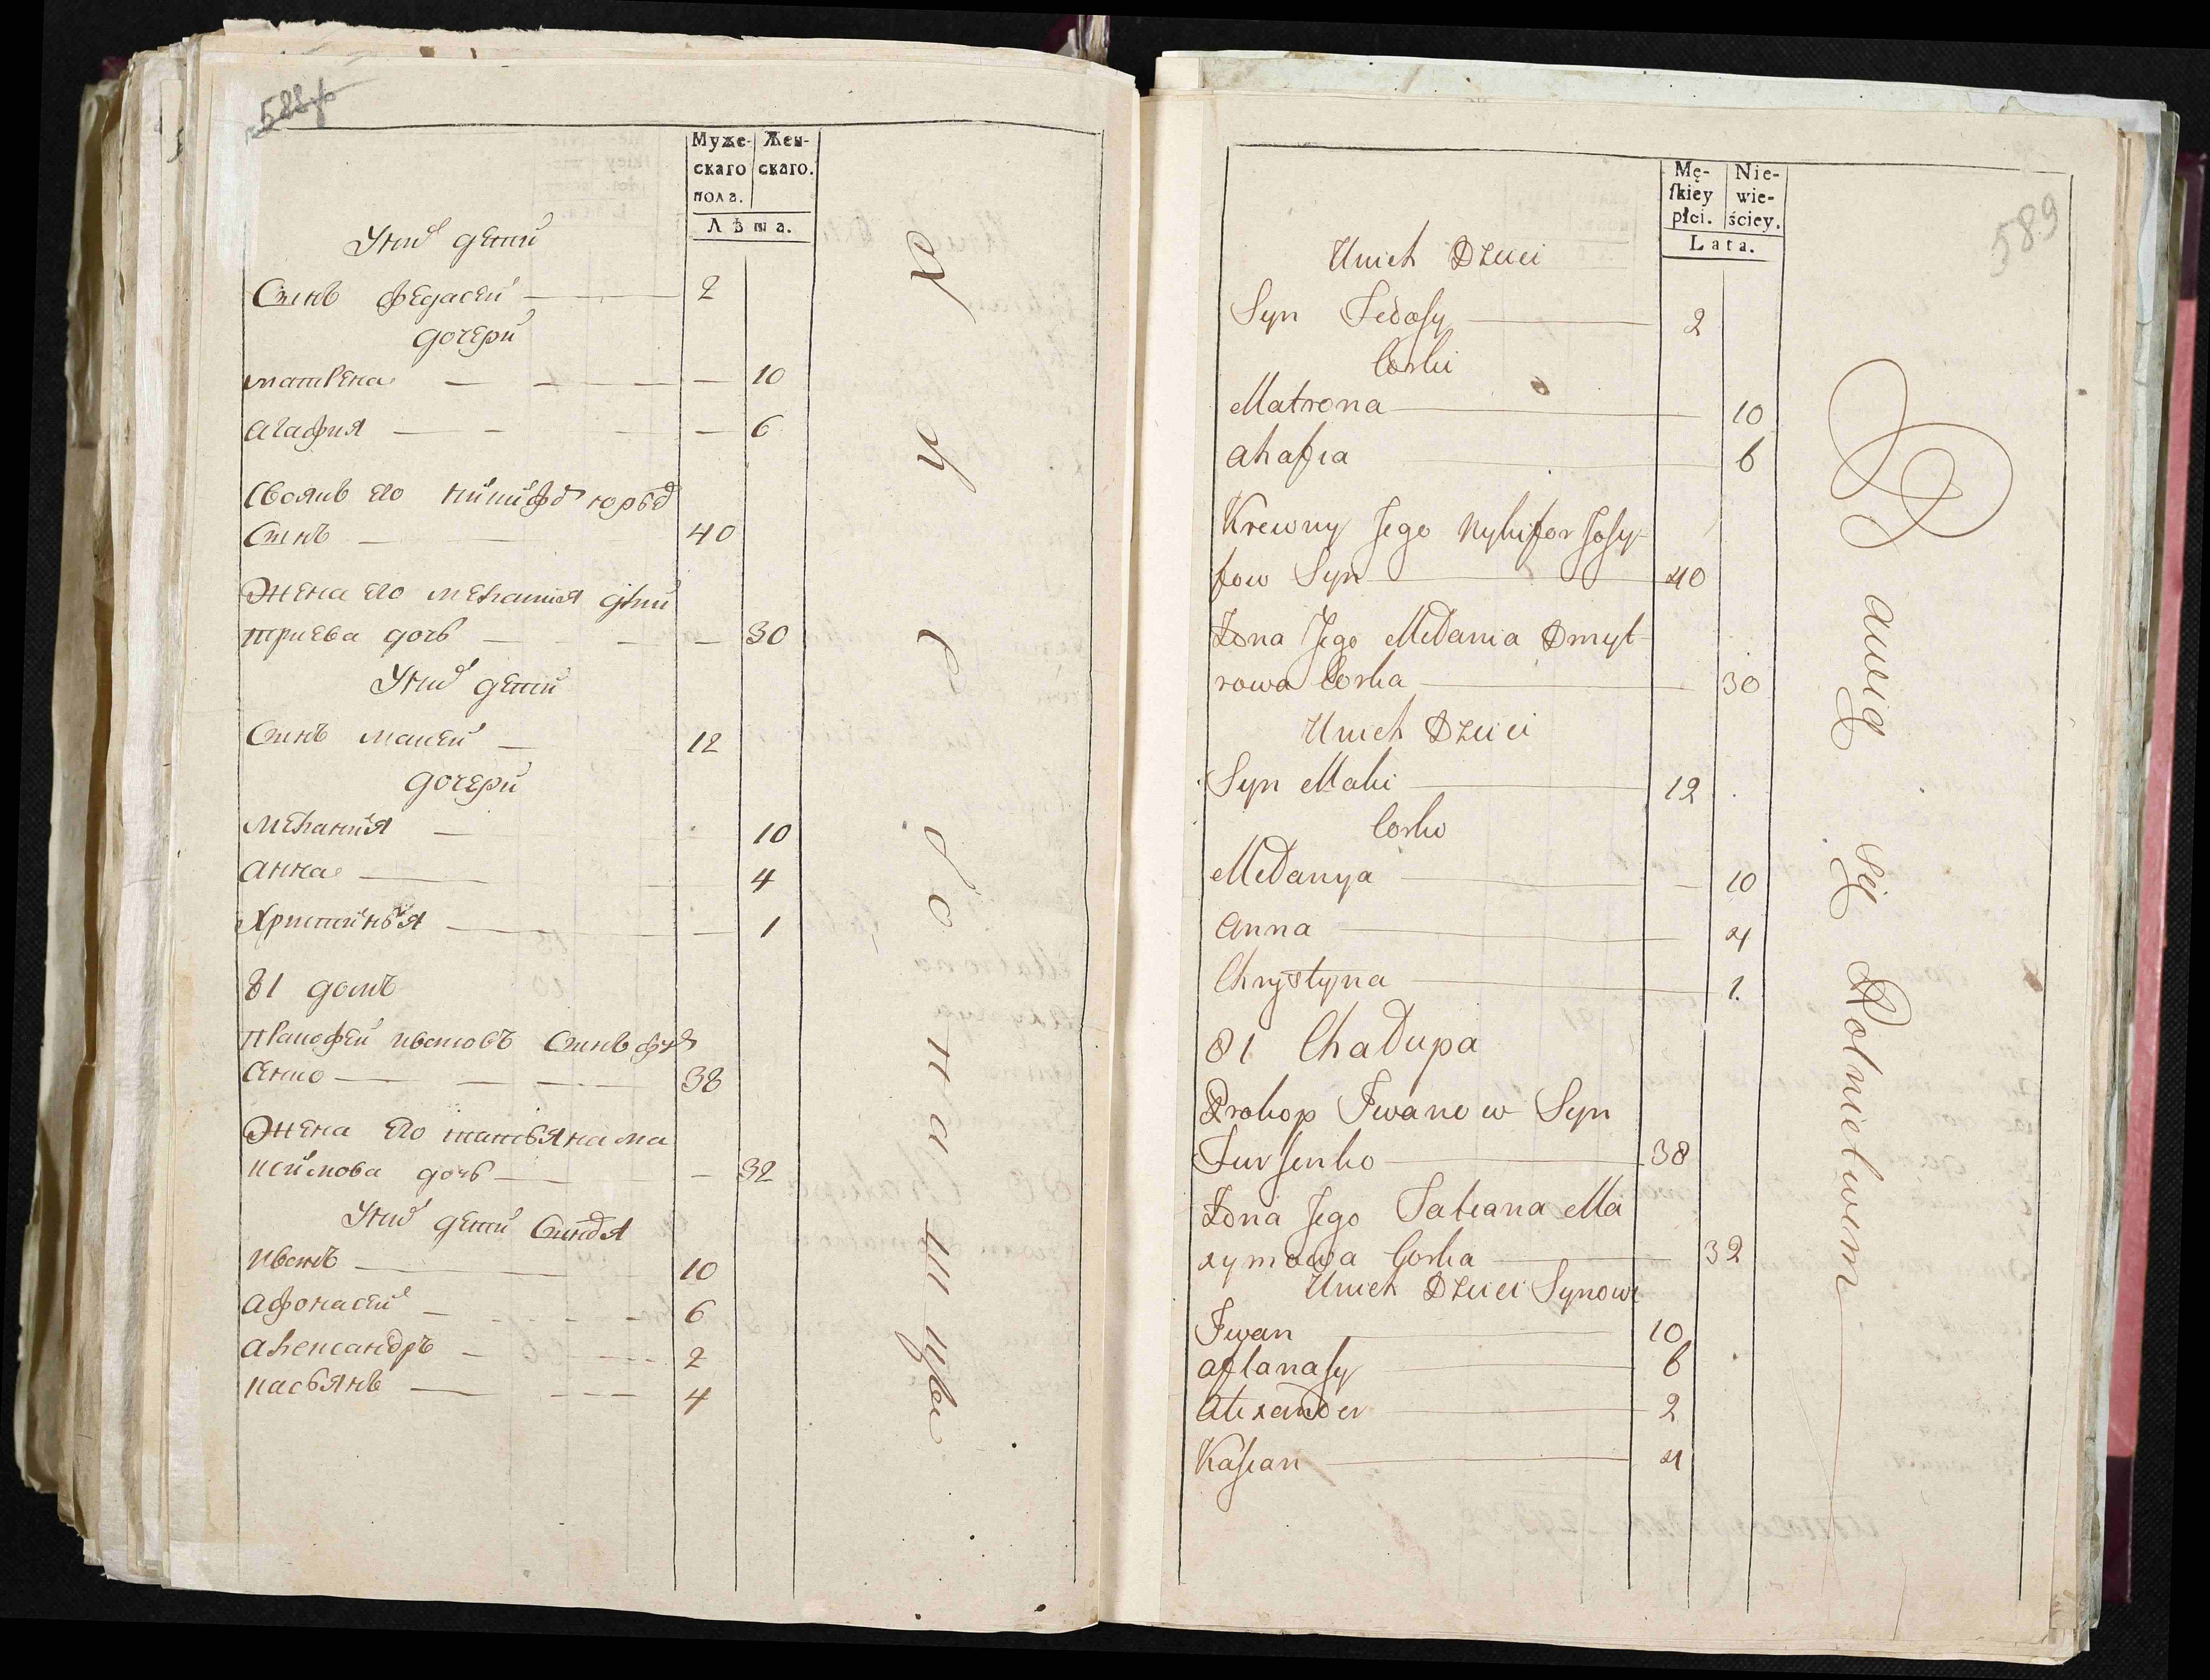 Муже- Жен-
скаго скаго.
пола.
Лѣта.
У них дети
Сынъ федасей 2
дочери
матрена 10
агафия 6
Своякъ его никифоръ юрьд
Сынъ 40
Жена его мелания дми
триева дочь 30
У них дети
Сынъ макей 12
дочери
мелания 10
анна 4
Христинья 1
81 домъ
Ивановъ Сынъ фур
Сенко 38
Жена его татьяна ма
ксимова дочь 32
У них дети Сыновья
иванъ 10
афонасей 6
александръ 2
касьянъ 4
589
Mę- Nie-
skiey wie-
płci. ściey.
Lata.
U nich Dzieci
Syn Fedosy 2
Corki
Matrona 10
ahafia 6
Krewny Jego Nykifor Josy-
fow Syn 40
Zona Jego Mełania Dmyt-
rowa Corka 30
U nich Dzieci
Syn Maki 12
Corko
Mełanya 10
Anna 4
Chrystyna 1.
81 Chałupa
Prokop Iwanow Syn
Fursenko 38
Zona Jego Tatiana Ma
xymowa Corka 32
U nich Dzieci Synowi
Iwan 10
aftanasy 6
Alexander 2
Kasian 4
Bawią się Rolnictwem